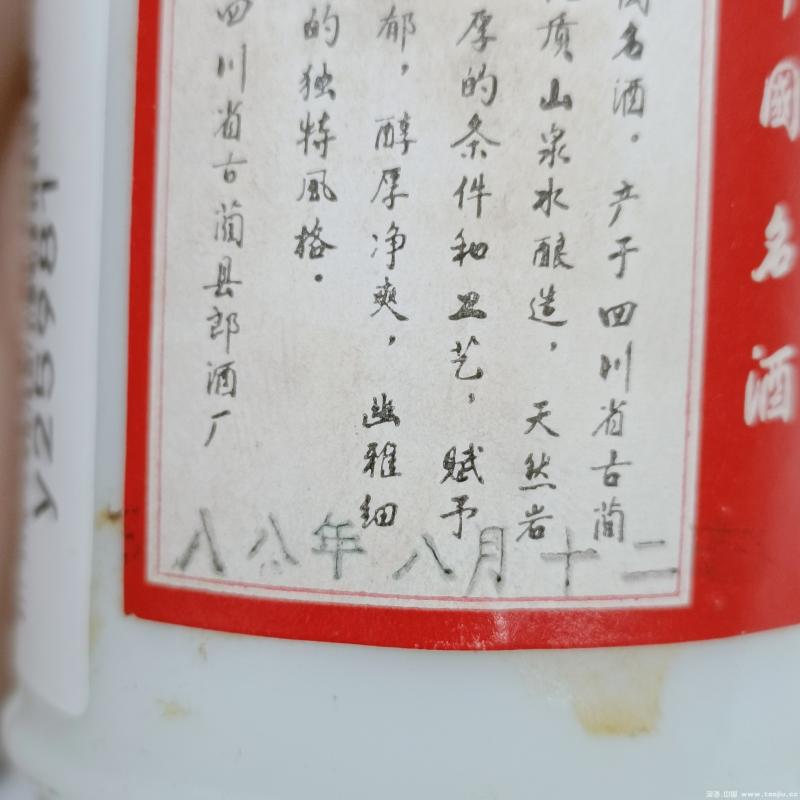 中國名酒
國名酒。产于四川省古蔺
质山泉水酿造，天然岩
厚的条件和工艺，赋予
郁，醇厚净爽，幽雅细
的独特风格。
四川省古蔺县郎酒厂
八八年八月十二
Y259681
www.taojiu.cc